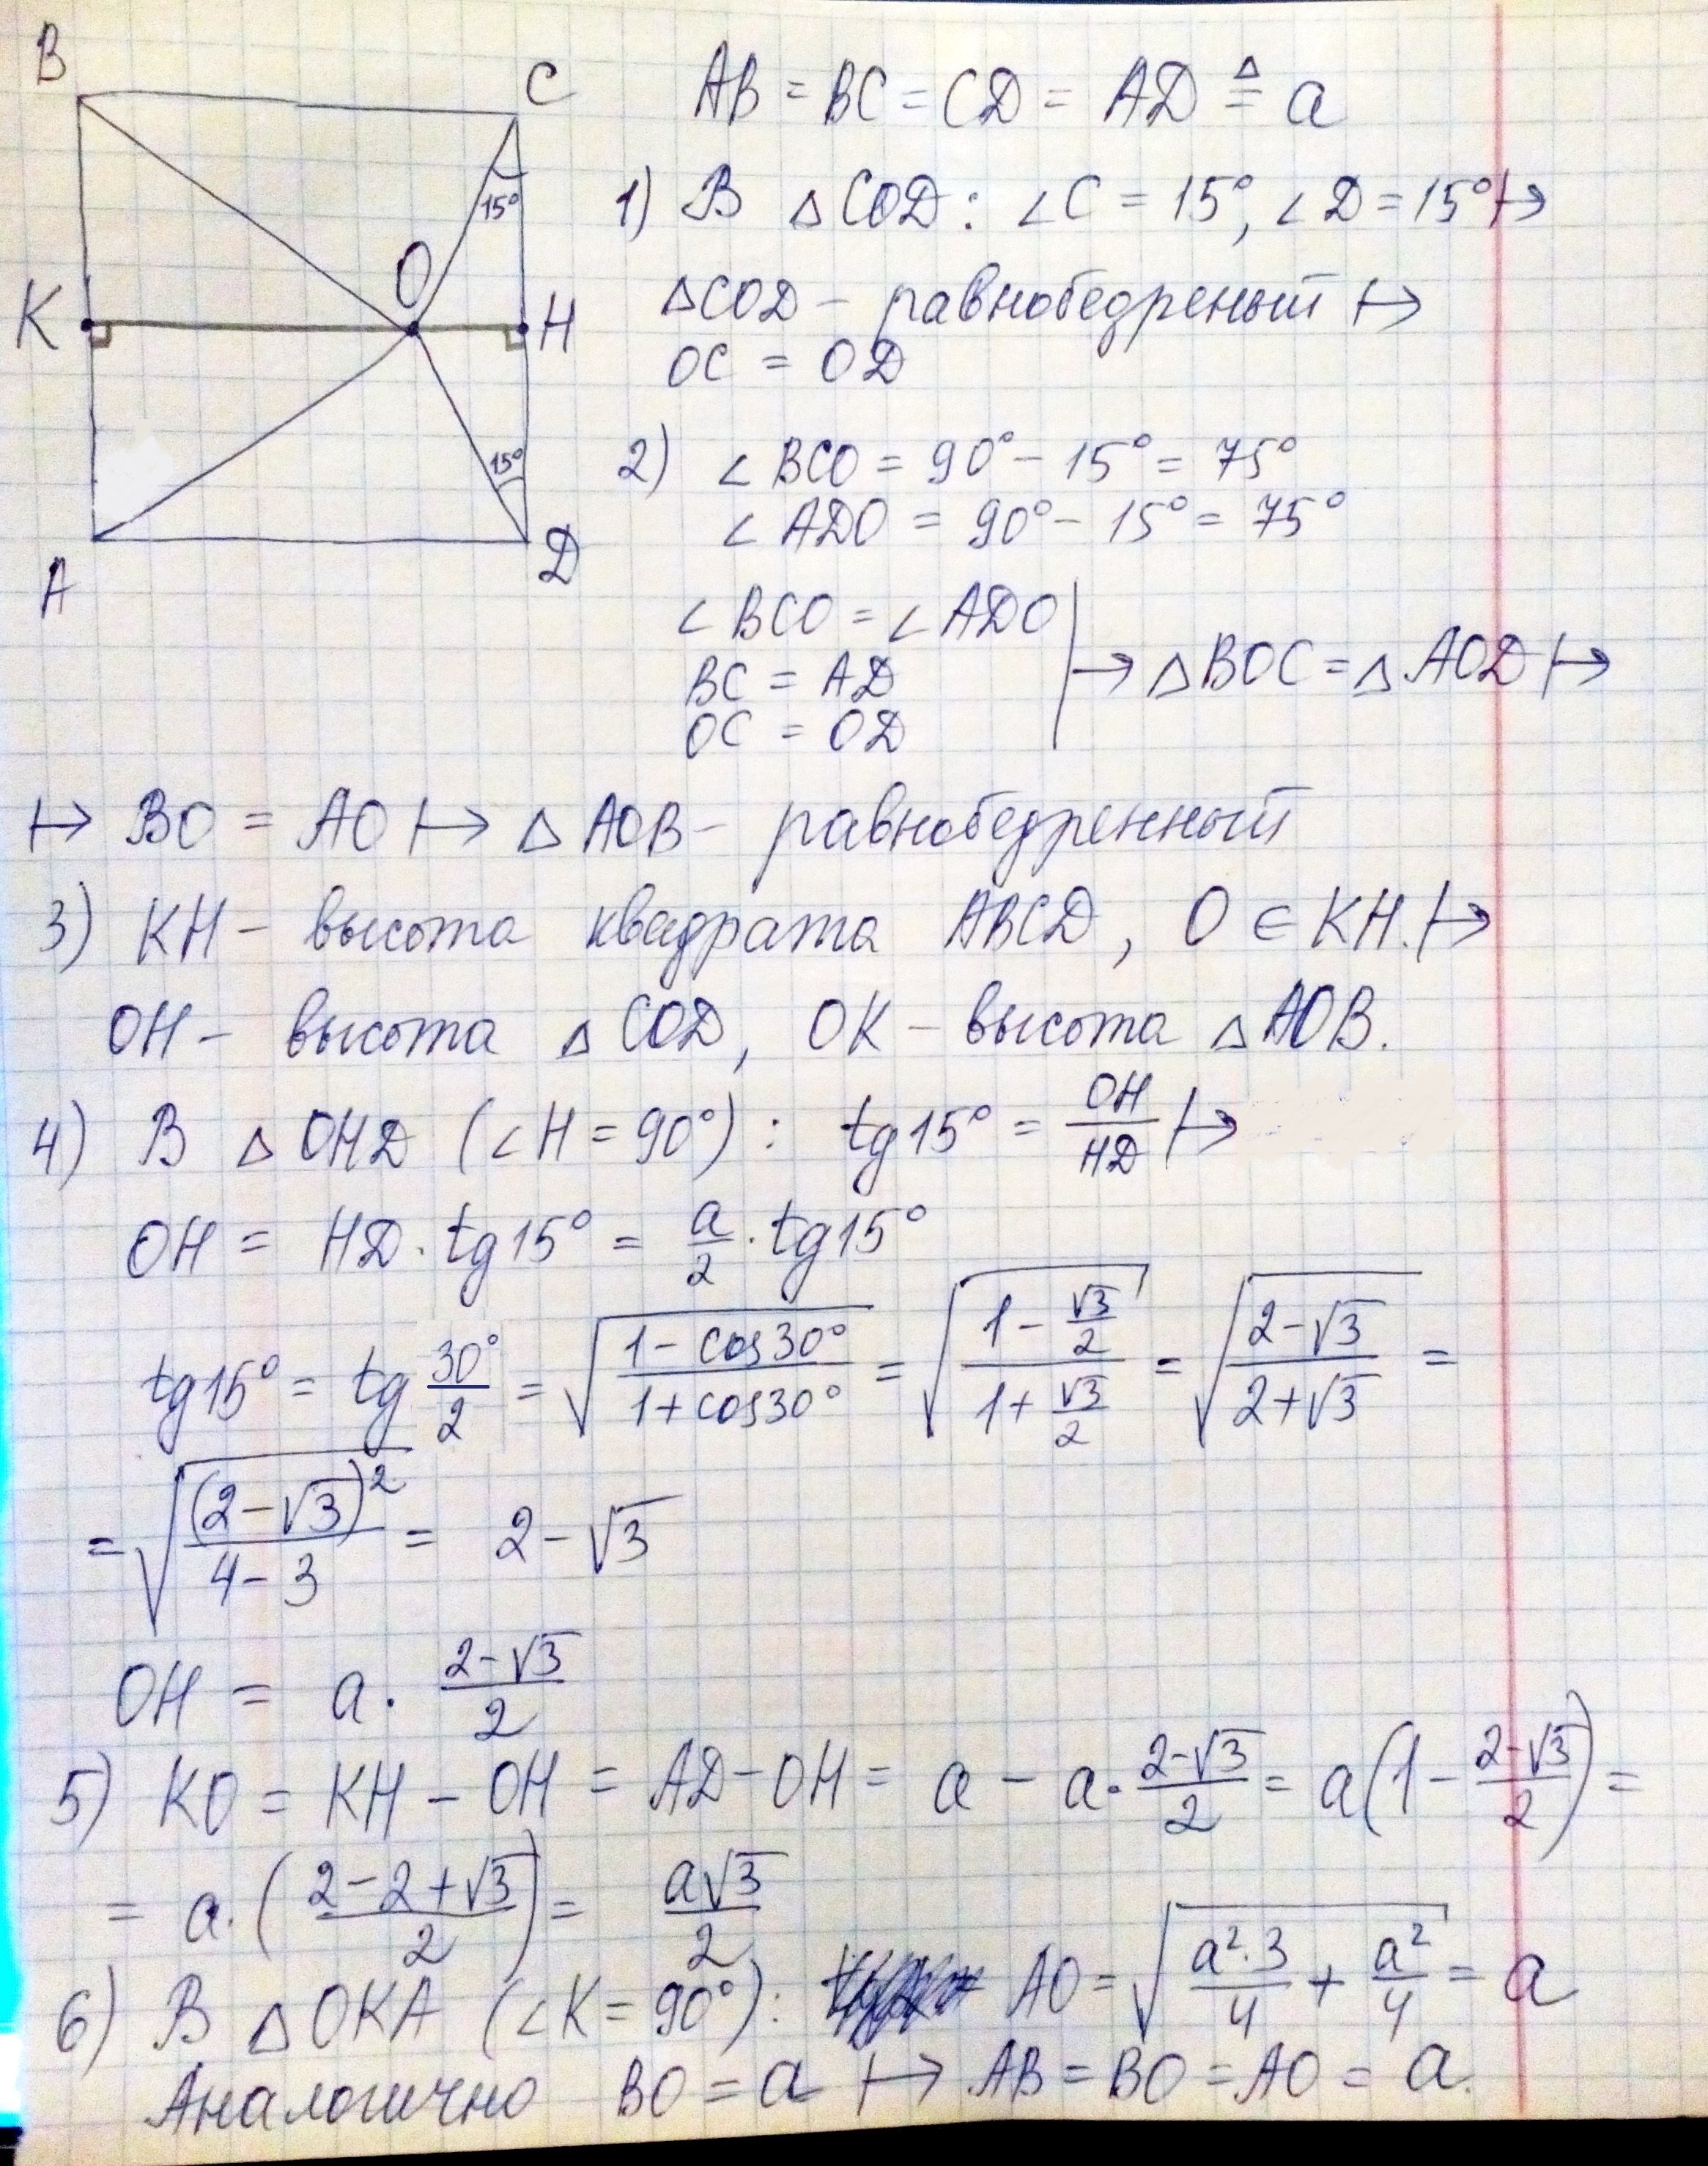 B
C
15°
O
K
H
15°
A
D
AB = BC = CD = AD ≜ a
1) В △COD: ∠C = 15°, ∠D = 15° ↦
△COD – равнобедреный ↦
OC = OD
2) ∠BCO = 90° – 15° = 75°
∠ADO = 90° – 15° = 75°
∠BCO = ∠ADO
BC = AD
OC = OD
↦ △BOC = △AOD ↦
↦ BO = AO ↦ △AOB – равнобедренный
3) KH – высота квадрата ABCD, O ∈ KH. ↦
OH – высота △COD, OK – высота △AOB.
4) В △OHD (∠H = 90°): tg15° = OH/HD ↦
OH = HD · tg15° = a/2 · tg15°
tg15° = tg 30°/2 = √((1 – cos30°)/(1 + cos30°)) = √((1 – √3/2)/(1 + √3/2)) = √((2 – √3)/(2 + √3)) =
= √((2 – √3)²/(4 – 3)) = 2 – √3
OH = a · (2 – √3)/2
5) KO = KH – OH = AD – OH = a – a · (2 – √3)/2 = a(1 – (2 – √3)/2) =
= a · ((2 – 2 + √3)/2) = a√3/2
6) В △OKA (∠K = 90°): AO = √(a²·3/4 + a²/4) = a
Аналогично BO = a ↦ AB = BO = AO = a.